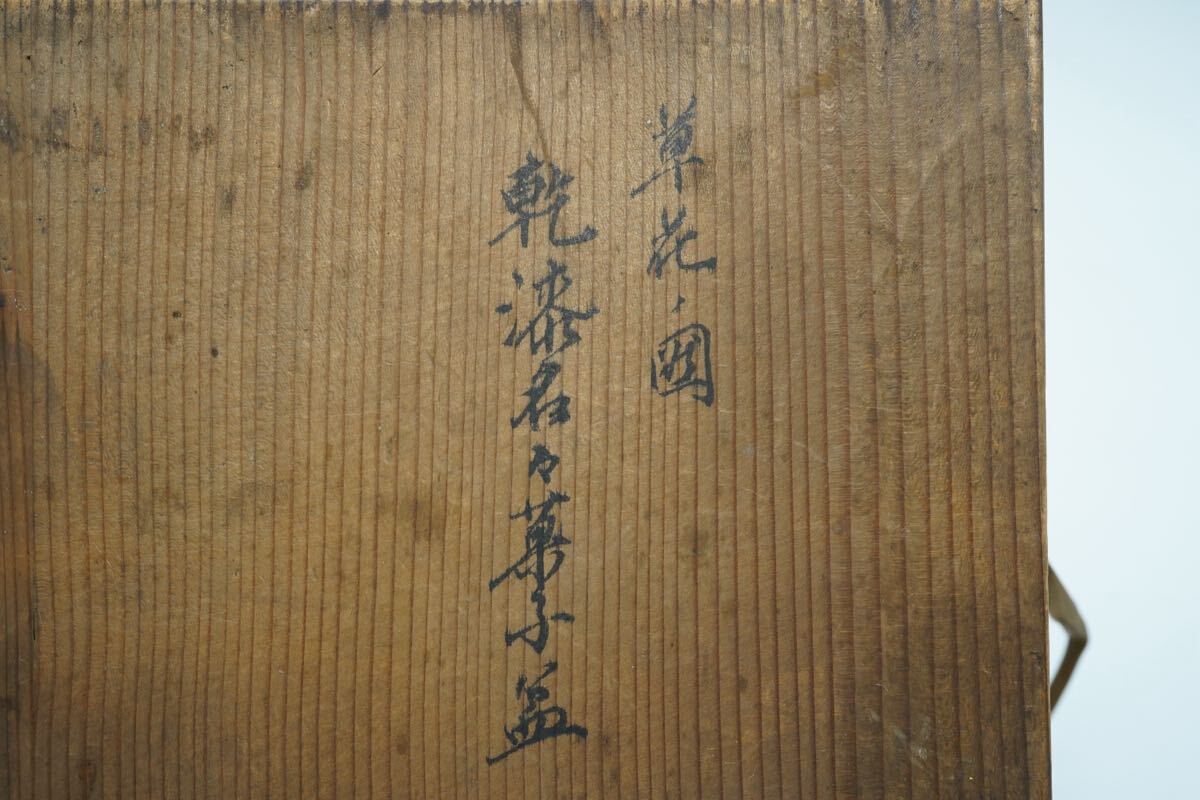 草花ノ圖
乾漆名々菓子盆